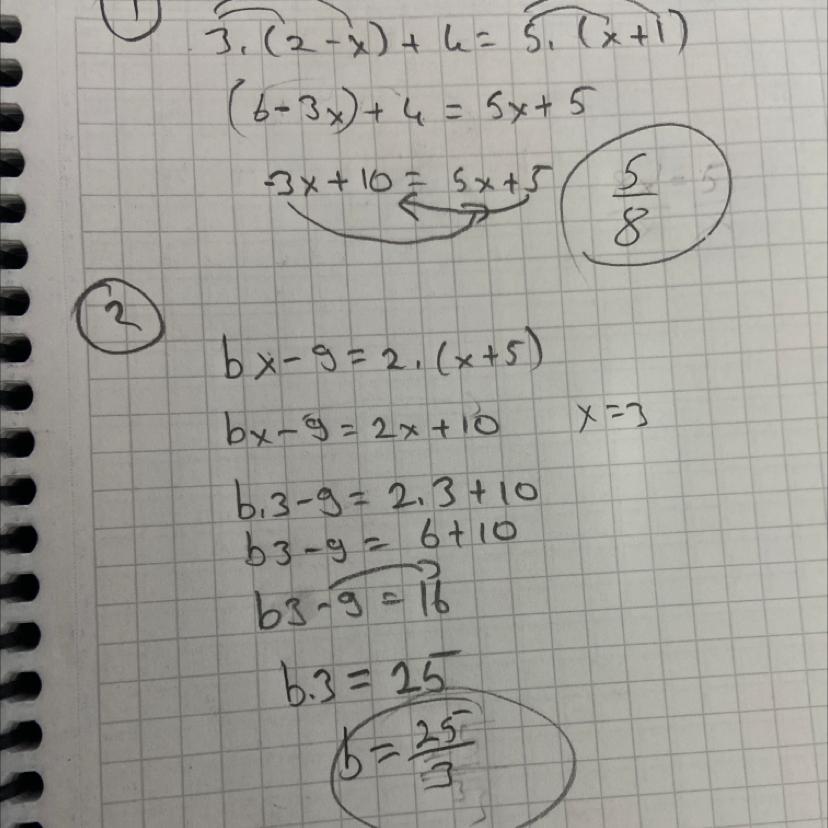 1
3.(2-x)+4=5.(x+1)
(6-3x)+4=5x+5
-3x+10=5x+5
5
8
2
bx-9=2.(x+5)
bx-9=2x+10 x=3
b.3-9=2.3+10
b3-9=6+10
b3-9=16
b.3=25
b=25/3